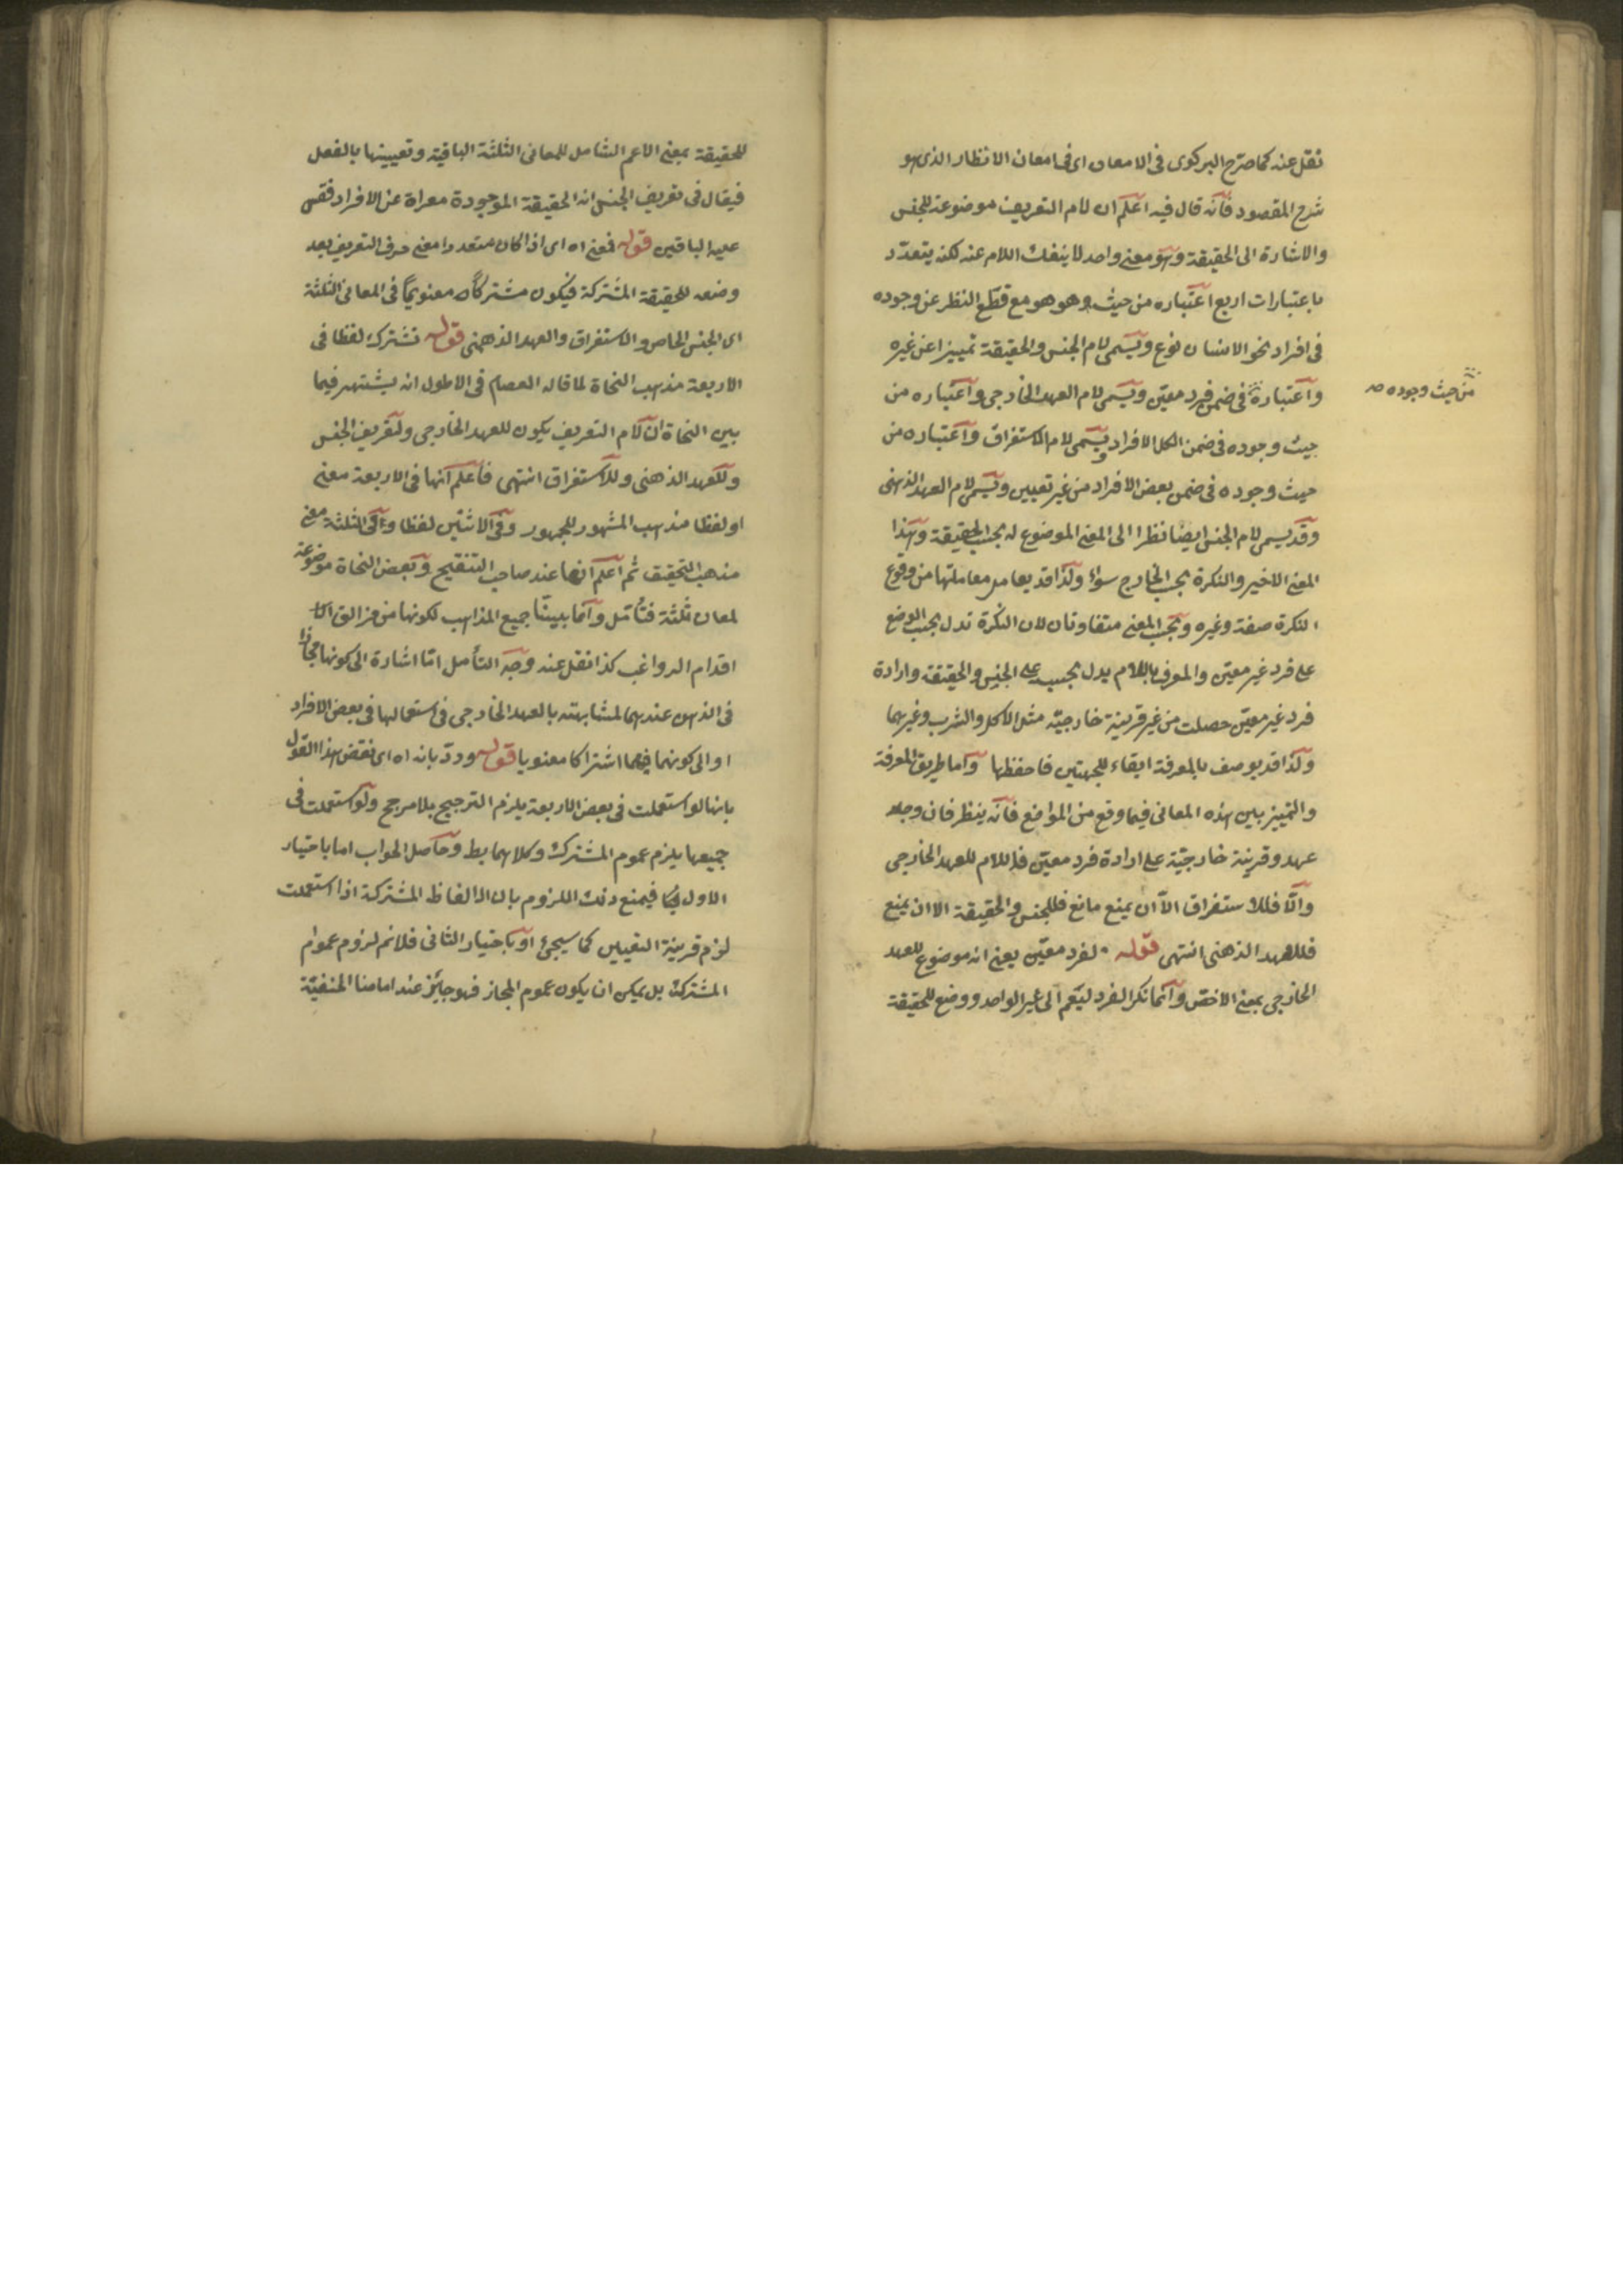 نقل عنه كما صرح البركوى فى الامعان اى فى امعان الانظار الذى هو
شرح المقصود فانه قال فيه اعلم ان لام التعريف موضوعة للجنس
والاشارة الى الحقيقة وهو معنى واحد لا ينفك اللام عنه لكنه يتعدّد
باعتبارات اربع اعتباره من حيث هو هو مع قطع النظر عن وجوده
فى افراد نحو الانسان نوع ويسمى لام الجنس والحقيقة تمييزا عن غيره
واعتباره فى ضمن فرد معيّن ويسمى لام العهد الخارجى واعتباره من
من حيث وجوده صح
حيث وجوده فى ضمن الكل الافراد ويسمى لام الاستغراق واعتباره من
حيث وجوده فى ضمن بعض الافراد من غير تعيين ويسمى لام العهد الذهنى
وقد يسمى لام الجنس ايضا نظرا الى المعنى الموضوع له بحسب الحقيقة وهذا
المعنى الاخير والنكرة بحسب الخارج سواء ولذا قد يعامل معاملتها من وقوع
النكرة صفة وغيره وبحسب المعنى متفاوتان لان النكرة تدل بحسب الوضع
على فرد غير معيّن والمعرف باللام يدل بحسبه على الجنس والحقيقة وارادة
فرد غير معيّن حصلت من غير قرينة خارجيّة مثل الاكل والشرب وغيرهما
ولذا قد يوصف بالمعرفة ابقاء للجهتين فاحفظها واما طريق المعرفة
والتمييز بين هذه المعانى فيما وقع من المواضع فانه ينظر فان وجد
عهد وقرينة خارجيّة على ارادة فرد معيّن فاللام للعهد الخارجى
والّا فللاستغراق الّا ان يمنع مانع فللجنس والحقيقة الا ان يمنع
فللعهد الذهنى انتهى قوله لفرد معيّن يعنى انه موضوع للعهد
الخارجى بمعنى الاخصّ وانما نكر الفرد ليعم الى غير الواحد ووضع للحقيقة
للحقيقة بمعنى الاعم الشامل للمعانى الثلثة الباقية وتعيينها بالفصل
فيقال فى تعريف الجنس انه الحقيقة الموجودة معراة عن الافراد فقس
عليه الباقين قوله فمعنى اه اى اذا كان متعددا معنى حرف التعريف بعد
وضعه للحقيقة المشتركة فيكون مشتركا معنويّا فى المعانى الثلثة
اى الجنس الخاص والاستغراق والعهد الذهنى قوله تشترك لفظا فى
الاربعة مذهب النحاة لما قاله العصام فى الاطول انه يشتهر فيما
بين النحاة ان لام التعريف يكون للعهد الخارجى ولتعريف الجنس
وللعهد الذهنى وللاستغراق انتهى فاعلم انها فى الاربعة معنى
او لفظا مذهب المشهور للجمهور وفى الاثنين لفظا وفى الثلثة معنى
مذهب التحقيق ثم اعلم انها عند صاحب التنقيح وبعض النحاة موضوعة
لمعان ثلثة فتأمّل وانما بيّنّا جميع المذاهب لكونها من مزالق
اقدام الرواغب كذا نقل عنه وجه التأمل امّا اشارة الى كونها مجازا
فى الذهن عندهما لمشابهته بالعهد الخارجى فى استعمالها فى بعض الافراد
او الى كونهما فيهما اشتراكا معنويا قوله وردّ بانه اه اى نقض هذا القول
بانها لو استعملت فى بعض الاربعة يلزم الترجيح بلا مرجح ولو استعملت فى
جميعها يلزم عموم المشترك وكلاهما بط وحاصل الجواب اما باختيار
الاول فيمنع ذلك اللزوم بان الالفاظ المشتركة اذا استعملت
لزم قرينة التعيين كما سيجئ او باختيار الثانى فلانم لزوم عموم
المشترك بل يمكن ان يكون عموم المجاز فهو جائز عند امامنا الحنفيّة